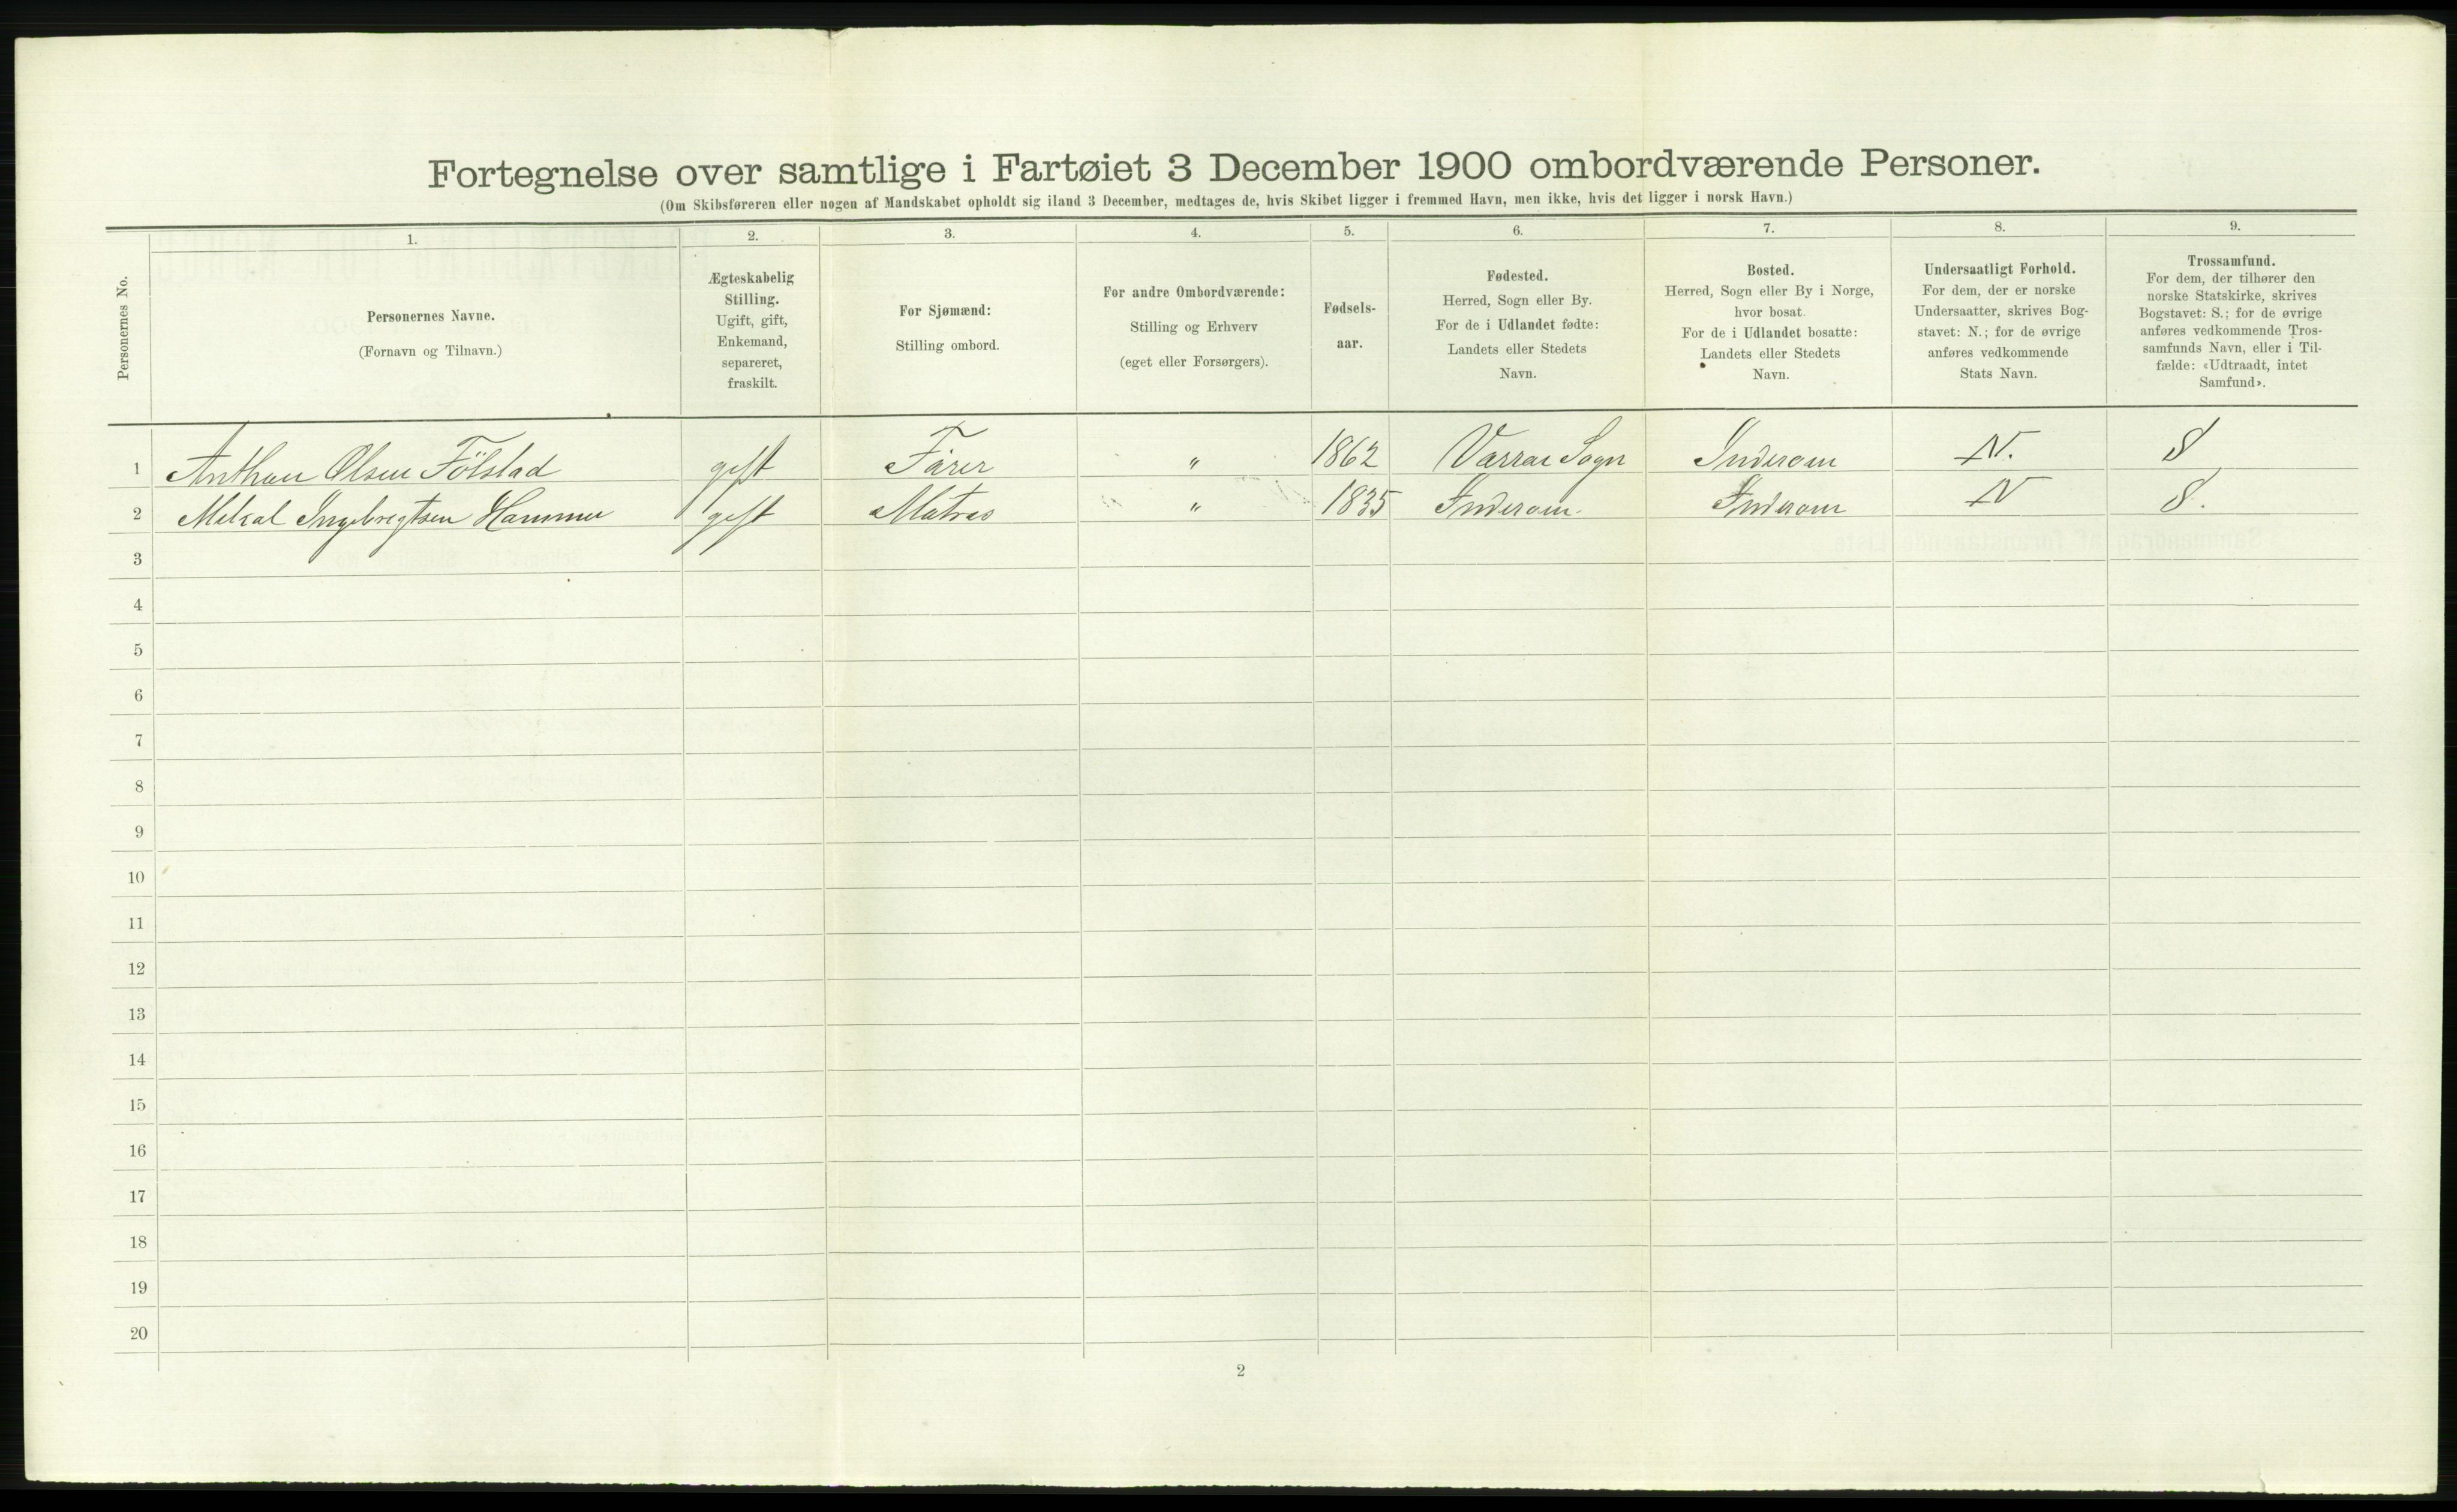 Fortegnelse over samtlige i Fartøiet 3 December 1900 ombordværende Personer.
(Om Skibsføreren eller nogen af Mandskabet opholdt sig iland 3 December, medtages de, hvis Skibet ligger i fremmed Havn, men ikke, hvis det ligger i norsk Havn.)
Personernes No.
1.
Personernes Navne.
(Fornavn og Tilnavn.)
2.
Ægteskabelig
Stilling.
Ugift, gift,
Enkemand,
separeret,
fraskilt.
3.
For Sjømænd:
Stilling ombord.
4.
For andre Ombordværende:
Stilling og Erhverv
(eget eller Forsørgers).
5.
Fødsels-
aar.
6.
Fødested.
Herred, Sogn eller By.
For de i Udlandet fødte:
Landets eller Stedets
Navn.
7.
Bosted.
Herred, Sogn eller By i Norge,
hvor bosat.
For de i Udlandet bosatte:
Landets eller Stedets
Navn.
8.
Undersaatligt Forhold.
For dem, der er norske
Undersaatter, skrives Bog-
stavet: N.; for de øvrige
anføres vedkommende
Stats Navn.
9.
Trossamfund.
For dem, der tilhører den
norske Statskirke, skrives
Bogstavet: S.; for de øvrige
anføres vedkommende Tros-
samfunds Navn, eller i Til-
fælde: «Udtraadt, intet
Samfund».
1 Anthon Olsen Fölstad gift Förer " 1862 Sogn Inderøen N. S
2 Ingebregtsen Hammer gift Matros " 1835 Inderøen Inderøen N S.
3
4
5
6
7
8
9
10
11
12
13
14
15
16
17
18
19
20
2